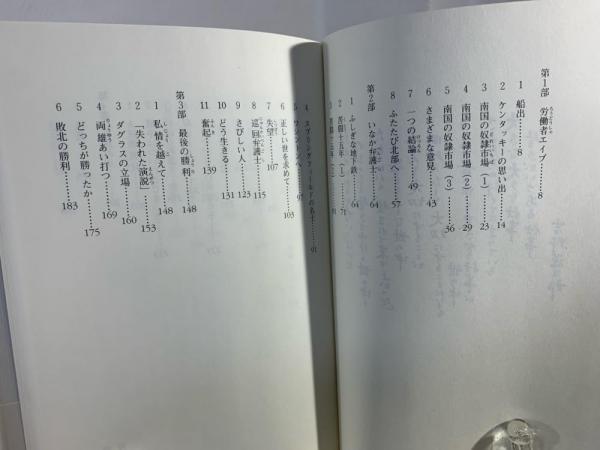 第1部 労働者エイブ……8
1 船出……8
2 ケンタッキーの思い出……14
3 南国の奴隷市場(1)……23
4 南国の奴隷市場(2)……29
5 南国の奴隷市場(3)……36
6 さまざまな意見……43
7 一つの結論……49
8 ふたたび北部へ……57
第2部 いなか弁護士……64
1 ふしぎな地下鉄……64
2 苦闘十五年(1)……71
3 苦闘十五年
4 スプリングフィールドの名士……91
5 ワシントンへ……97
6 正しい世を求めて……103
7 失望……107
8 巡回弁護士……115
9 さびしい人……123
10 どう生きる……131
11 奮起……139
第3部 最後の勝利……148
1 私情を越えて……148
2 「失われた演説」……153
3 ダグラスの立場……160
4 両雄あい打つ……169
5 どっちが勝ったか……175
6 敗北の勝利……183